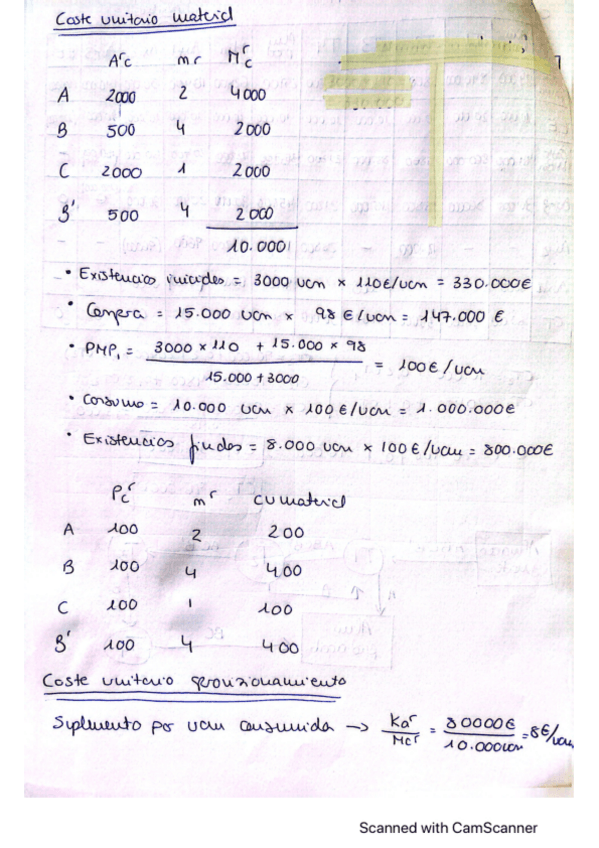 Coste unitario material
Arc mr Mrc
A 2000 2 4000
B 500 4 2000
C 2000 1 2000
B' 500 4 2000
10.000
• Existencias iniciales = 3000 ucm × 110€/ucm = 330.000€
• Compra = 15.000 ucm × 98 €/ucm = 147.000 €
• PMP1 = 3000 × 110 + 15.000 × 98
15.000 + 3000
= 100€/ucm
• Consumo = 10.000 ucm × 100€/ucm = 1.000.000€
• Existencias finales = 8.000 ucm × 100€/ucm = 800.000€
Pcr mr cu material
A 100 2 200
B 100 4 400
C 100 1 100
B' 100 4 400
Coste unitario aprovizionamiento
Suplemento por ucm consumida → Kar / Mcr = 80000€ / 10.000ucm = 8€/ucm
Scanned with CamScanner